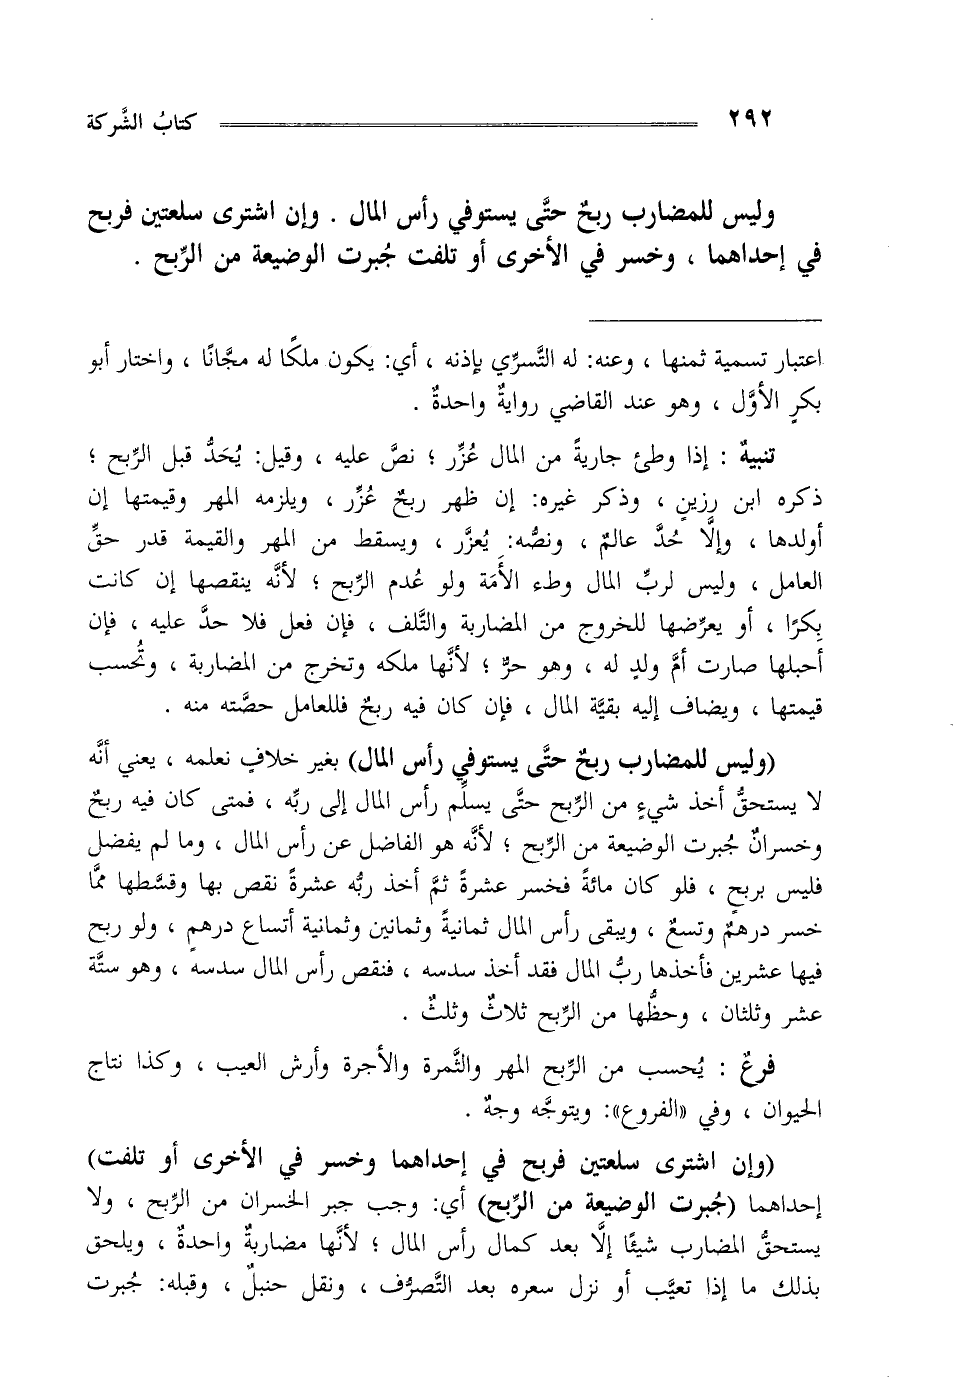 ٢٩٢ كتابُ الشَّركة
وليس للمضارب ربحٌ حتَّى يستوفي رأس المال . وإن اشترى سلعتين فربح
في إحداهما ، وخسر في الأخرى أو تلفت جُبرت الوضيعة من الرِّبح .
اعتبار تسمية ثمنها ، وعنه: له التَّسرِّي بإذنه ، أي: يكون ملكًا له مجَّانًا ، واختار أبو
بكرٍ الأوَّل ، وهو عند القاضي روايةٌ واحدةٌ .
تنبيهٌ : إذا وطئ جاريةً من المال عُزِّر ؛ نصَّ عليه ، وقيل: يُحَدُّ قبل الرِّبح ؛
ذكره ابن رزينٍ ، وذكر غيره: إن ظهر ربحٌ عُزِّر ، ويلزمه المهر وقيمتها إن
أولدها ، وإلَّا حُدَّ عالمٌ ، ونصُّه: يُعزَّر ، ويسقط من المهر والقيمة قدر حقِّ
العامل ، وليس لربِّ المال وطء الأَمَة ولو عُدم الرِّبح ؛ لأنَّه ينقصها إن كانت
بِكرًا ، أو يعرِّضها للخروج من المضاربة والتَّلف ، فإن فعل فلا حدَّ عليه ، فإن
أحبلها صارت أمَّ ولدٍ له ، وهو حرٌّ ؛ لأنَّها ملكه وتخرج من المضاربة ، وتُحسب
قيمتها ، ويضاف إليه بقيَّة المال ، فإن كان فيه ربحٌ فللعامل حصَّته منه .
(وليس للمضارب ربحٌ حتَّى يستوفي رأس المال) بغير خلافٍ نعلمه ، يعني أنَّه
لا يستحقُّ أخذ شيءٍ من الرِّبح حتَّى يسلِّم رأس المال إلى ربِّه ، فمتى كان فيه ربحٌ
وخسرانٌ جُبرت الوضيعة من الرِّبح ؛ لأنَّه هو الفاضل عن رأس المال ، وما لم يفضل
فليس بربحٍ ، فلو كان مائةً فخسر عشرةً ثمَّ أخذ ربُّه عشرةً نقص بها وقسَّطها ممَّا
خسر درهمٌ وتسعٌ ، ويبقى رأس المال ثمانيةً وثمانين وثمانية أتساع درهمٍ ، ولو ربح
فيها عشرين فأخذها ربُّ المال فقد أخذ سدسه ، فنقص رأس المال سدسه ، وهو ستَّة
عشر وثلثان ، وحظُّها من الرِّبح ثلاثٌ وثلثٌ .
فرعٌ : يُحسب من الرِّبح المهر والثَّمرة والأجرة وأرش العيب ، وكذا نتاج
الحيوان ، وفي «الفروع»: ويتوجَّه وجهٌ .
(وإن اشترى سلعتين فربح في إحداهما وخسر في الأخرى أو تلفت)
إحداهما (جُبرت الوضيعة من الرِّبح) أي: وجب جبر الخسران من الرِّبح ، ولا
يستحقُّ المضارب شيئًا إلَّا بعد كمال رأس المال ؛ لأنَّها مضاربةٌ واحدةٌ ، ويلحق
بذلك ما إذا تعيَّب أو نزل سعره بعد التَّصرُّف ، ونقل حنبلٌ ، وقبله: جُبرت